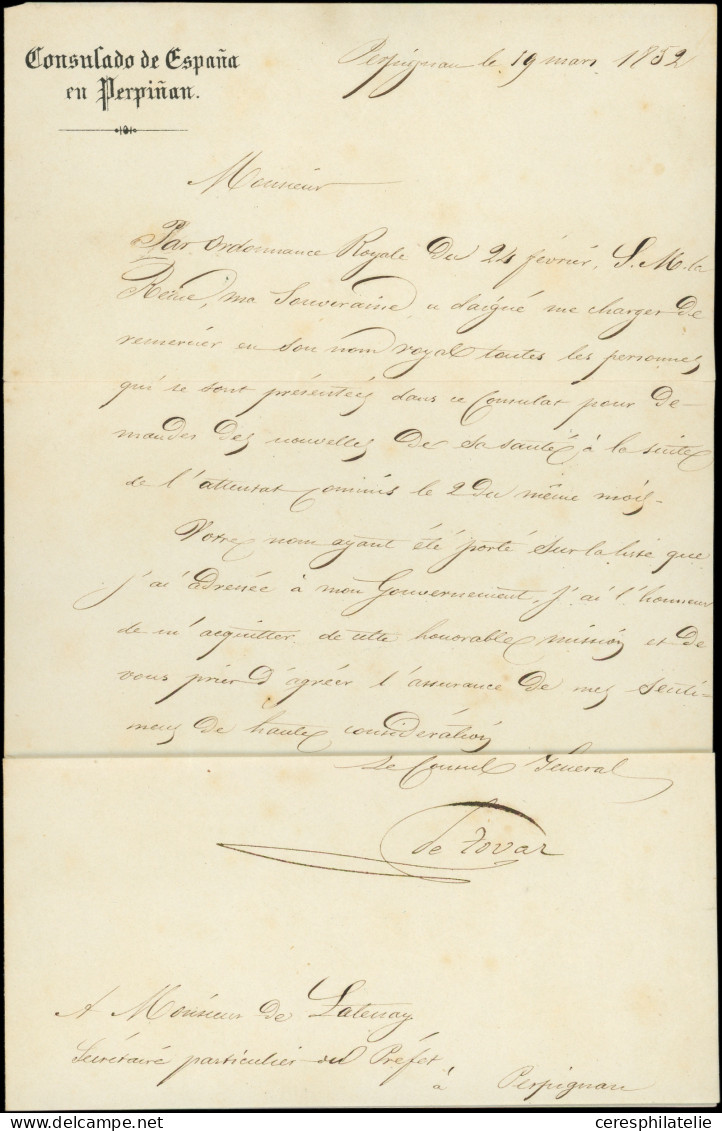 Consulado de España
en Perpiñan.
Perpignan le 19 mars 1852
Monsieur
Par Ordonnance Royale du 24 février, S. M. la
Reine, ma Souveraine, a daigné me charger de
remercier en son nom royal toutes les personnes
qui se sont présentées dans ce Consulat pour de-
mander des nouvelles de sa santé à la suite
de l'attentat commis le 2 du même mois.
Votre nom ayant été porté sur la liste que
j'ai adressée à mon Gouvernement, j'ai l'honneur
de m'acquitter de cette honorable mission et de
vous prier d'agréer l'assurance de mes senti-
mens de haute considération
Le Consul General
de Tovar
A Monsieur de Latenay
Secrétaire particulier du Préfet
à Perpignan
ceresphilatelie